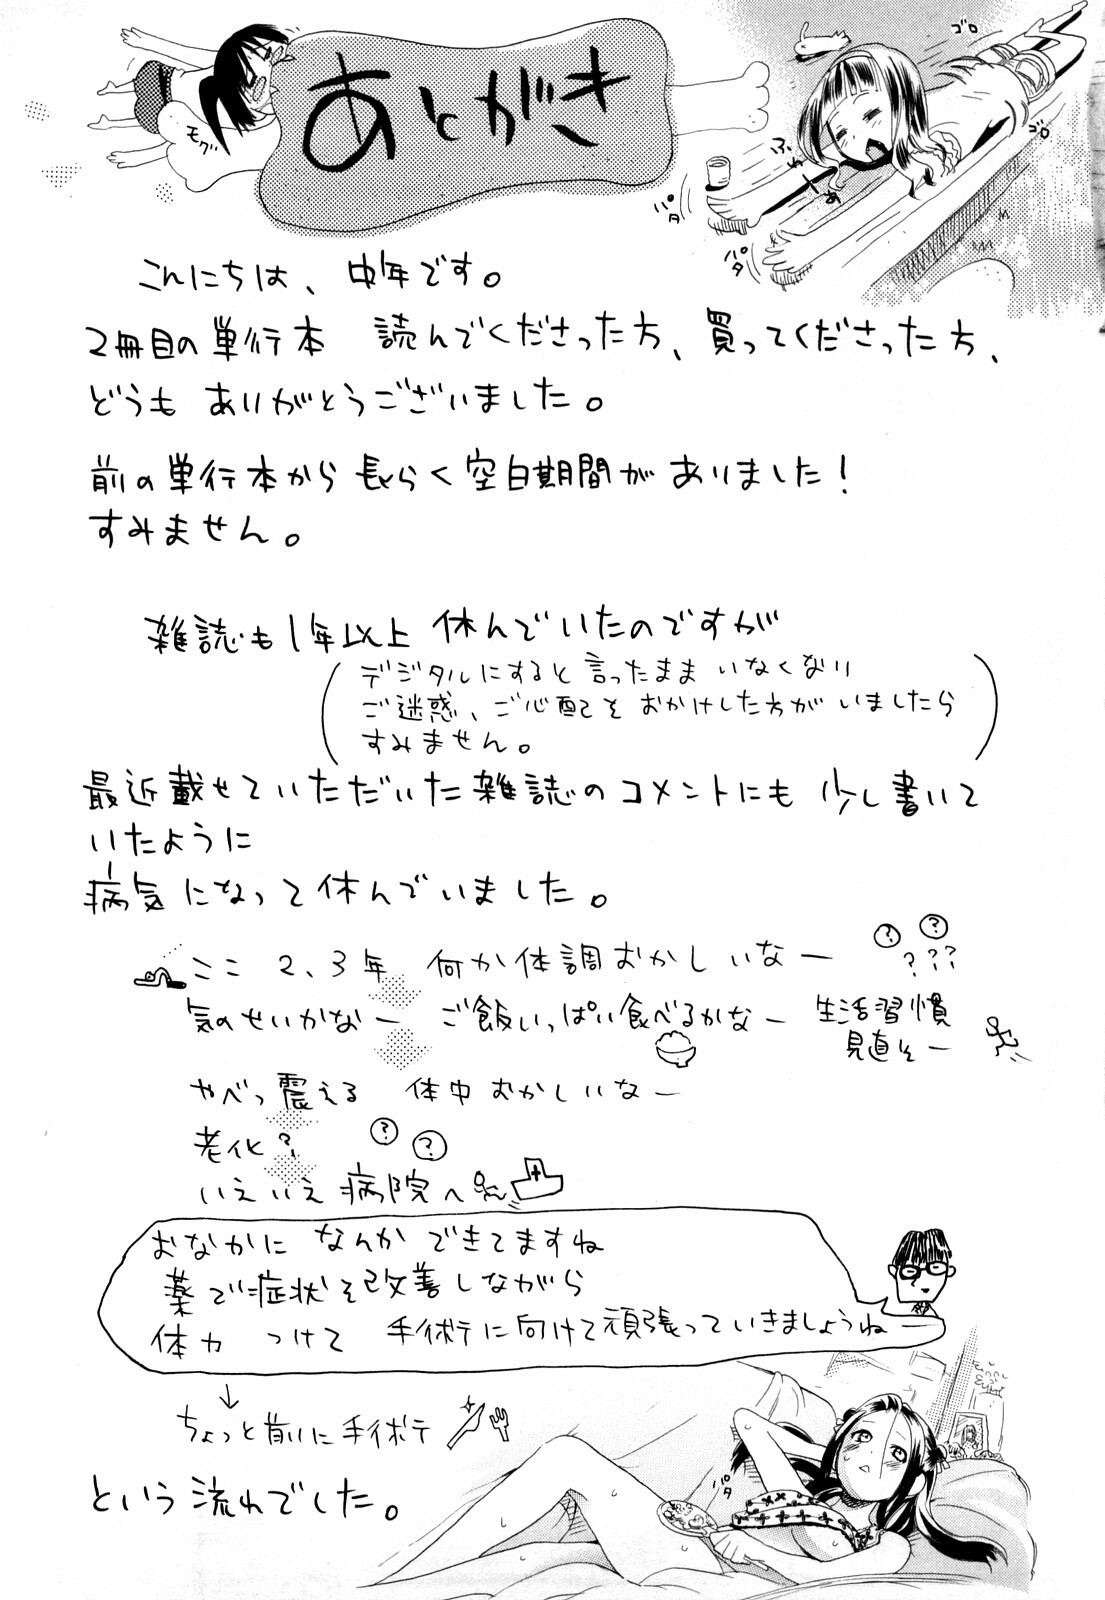 あとがき
モグ
ゴロ
ゴロ
ふわーあ
パタ
パタ
こんにちは、中年です。
2冊目の単行本 読んでくださった方、買ってくださった方、
どうも ありがとうございました。
前の単行本から長らく空白期間がありました!
すみません。
雑誌も1年以上 休んでいたのですが
デジタルにすると言ったまま いなくなり
ご迷惑、ご心配を おかけした方が いましたら
すみません。
最近載せていただいた雑誌のコメントにも 少し書いて
いたように
病気になって休んでいました。
ここ 2、3年 何か体調おかしいなー
? ? ? ? ?
気のせいかなー ご飯いっぱい食べるかなー 生活習慣
見直そー
やべっ震える 体中おかしいなー
老化? ? ?
いえいえ病院へ
おなかに なんか できてますね
薬で症状を改善しながら
体力 つけて 手術に向けて頑張っていきましょうねー
↓
ちょっと前に手術
パタ
という流れでした。